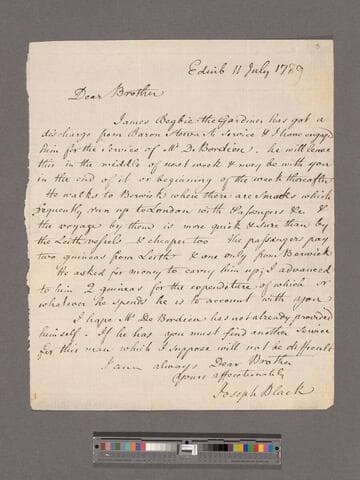 Edinb 11 July 1789
Dear Brother
James Begbie the Gardner has got a
discharge from Baron Service & I have engaged
him for the Service of Mr De Bordieu. he will leave
this in the middle of next week & may be with you
in the end of it or beginning of the week thereafter
He walks to Berwick where there are Smacks which
frequently run up to London with Passengers &c. &
the voyage by them is more quick & sure than by
the Leith vessels & cheaper too The passengers pay
two guineas from Leith & one only from Berwick
He asked for money to carry him up; I advanced
to him 2 guineas for the expenditure of which or
whatever he spends he is to account with you
I hope Mr De Bordieu has not already provided
himself. If he has you must find another Service
for this man which I suppose will not be difficult
I am always Dear Brother
Yours affectionately
Joseph Black